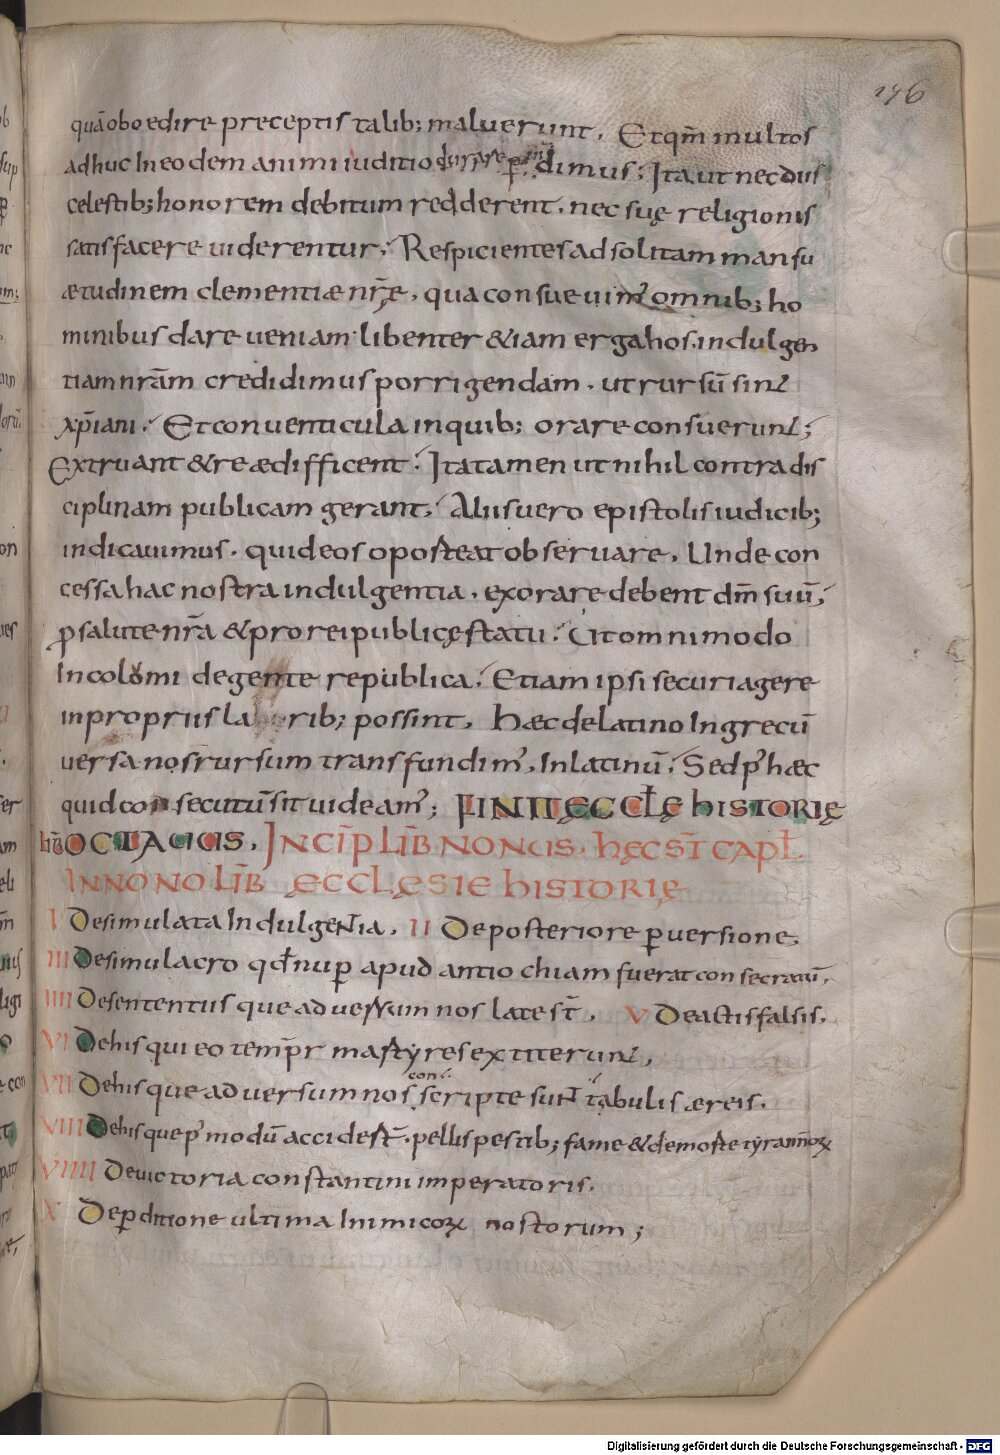 146
quā oboedire preceptis talib; maluerunt. Et qm̄ in multos
adhuc In eodem animi iuditio durare p̱ dimus; Ita ut nec diis
celestib; honorem debitum redderent. nec suę religionis
satisfacere uiderentur; Respicientes ad solitam mansu
ætudinem clementiæ nr̄ę. qua consueuim' omnib; ho
minibus dare ueniam libenter &iam erga hos. indulgen
tiam nrām credidimus porrigendam. ut rursū sint
xp̄iani; Et conuenticula in quib; orare consuerunt;
Extruant & reædifficent; Ita tamen ut nihil contra dis
ciplinam publicam gerant; Aliis uero epistolis iudicib;
indicauimus. quid eos oporteat obseruare. Unde con
cessa hac nostra indulgentia. exorare debent dm̄ suū;
ꝓ salute nr̄a & pro reipublicę statu; Ut omnimodo
Incolomi degente republica; Etiam ipsi securi agere
in propriis la rib; possint. Hæc de latino In grecū
uersa nos rursum transfundim'. In latinū; Sed p' hæc
quid consecutū sit uideam'; FINIT ĘCCL̄Ę HISTORIĘ
LIB̄ OCTAUUS. INCIP̄ LIB̄ NONUS. HĘC ST̄ CAPƚ.
IN NONO LIB̄ ĘCCLĘSIE HISTORIĘ
I De simulata Indulgentia. II De posteriore ꝑuersione;
III De simulacro qd̄ nuꝑ apud antiochiam fuerat consecratū;
IIII De sententiis que aduersum nos late st̄. V De actis falsis.
VI De his qui eo temp̄r martyres extiterunt.
VII De his que aduersum nos con scripte sunt tabulis æreis.
VIII De his que p' modū acciderst̄. pellis pestib; fame & de morte tyrannoꝝ
VIIII De uictoria constantini imperatoris.
X De ꝑditione ultima Inimicoꝝ nostorum;
Digitalisierung gefördert durch die Deutsche Forschungsgemeinschaft - DFG